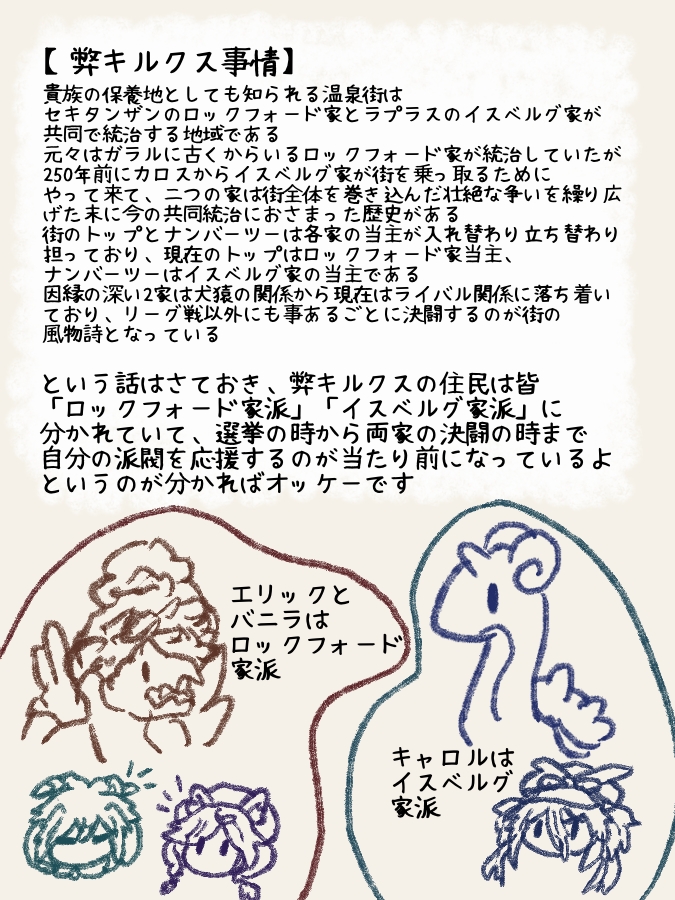 【 弊キルクス事情】
貴族の保養地としても知られる温泉街は
セキタンザンのロックフォード家とラプラスのイスベルグ家が
共同で統治する地域である
元々はガラルに古くからいるロックフォード家が統治していたが
250年前にカロスからイスベルグ家が街を乗っ取るために
やって来て、二つの家は街全体を巻き込んだ壮絶な争いを繰り広
げた末に今の共同統治におさまった歴史がある
街のトップとナンバーツーは各家の当主が入れ替わり立ち替わり
担っており、現在のトップはロックフォード家当主、
ナンバーツーはイスベルグ家の当主である
因縁の深い2家は犬猿の関係から現在はライバル関係に落ち着い
ており、リーグ戦以外にも事あるごとに決闘するのが街の
風物詩となっている
という話はさておき、弊キルクスの住民は皆
「ロックフォード家派」「イスベルグ家派」に
分かれていて、選挙の時から両家の決闘の時まで
自分の派閥を応援するのが当たり前になっているよ
というのが分かればオッケーです
エリックと
バニラは
ロックフォード
家派
キャロルは
イスベルグ
家派